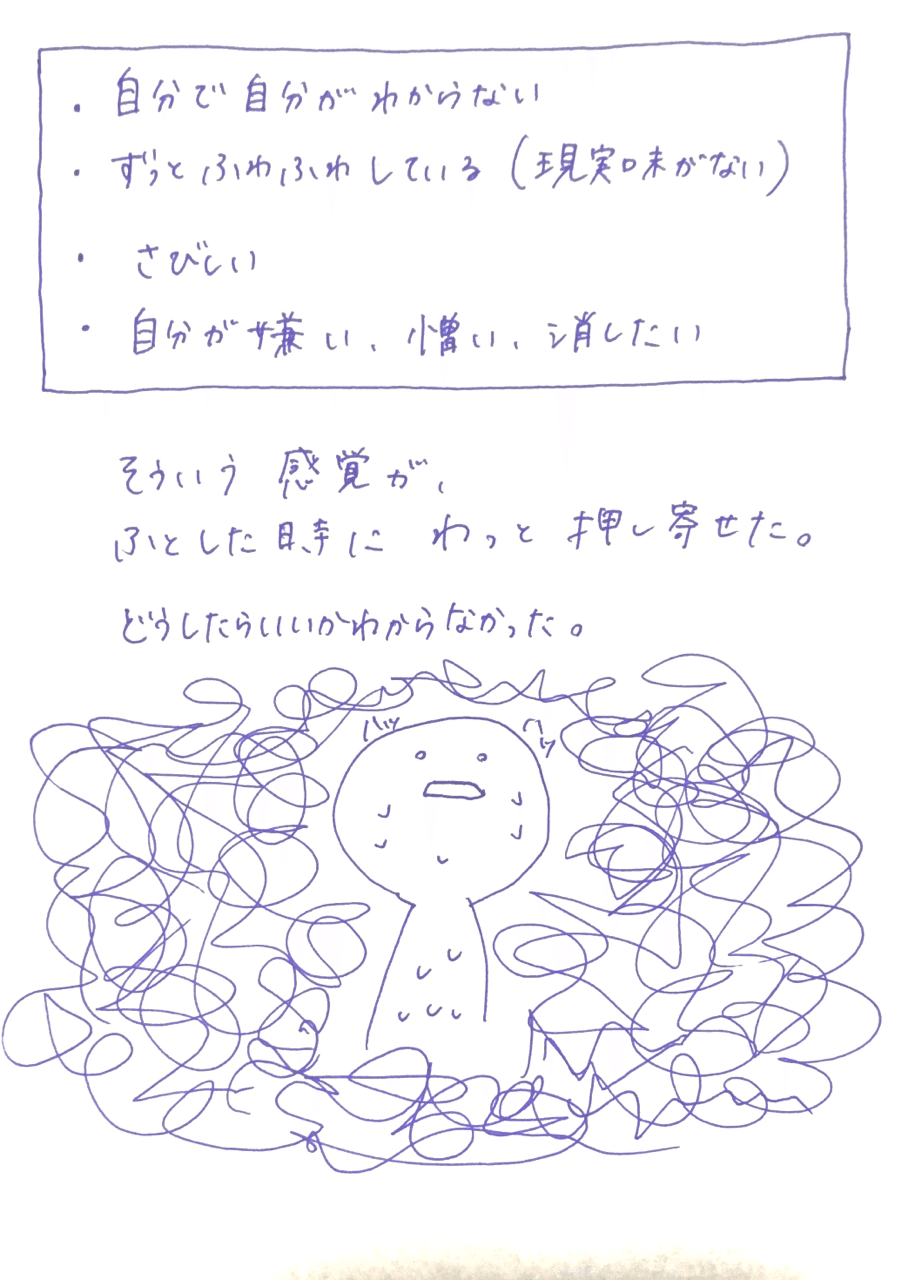 ・自分で自分がわからない
・ずっとふわふわしている(現実味がない)
・さびしい
・自分が嫌い、憎い、消したい
そういう感覚が、
ふとした時にわっと押し寄せた。
どうしたらいいかわからなかった。
ハッ